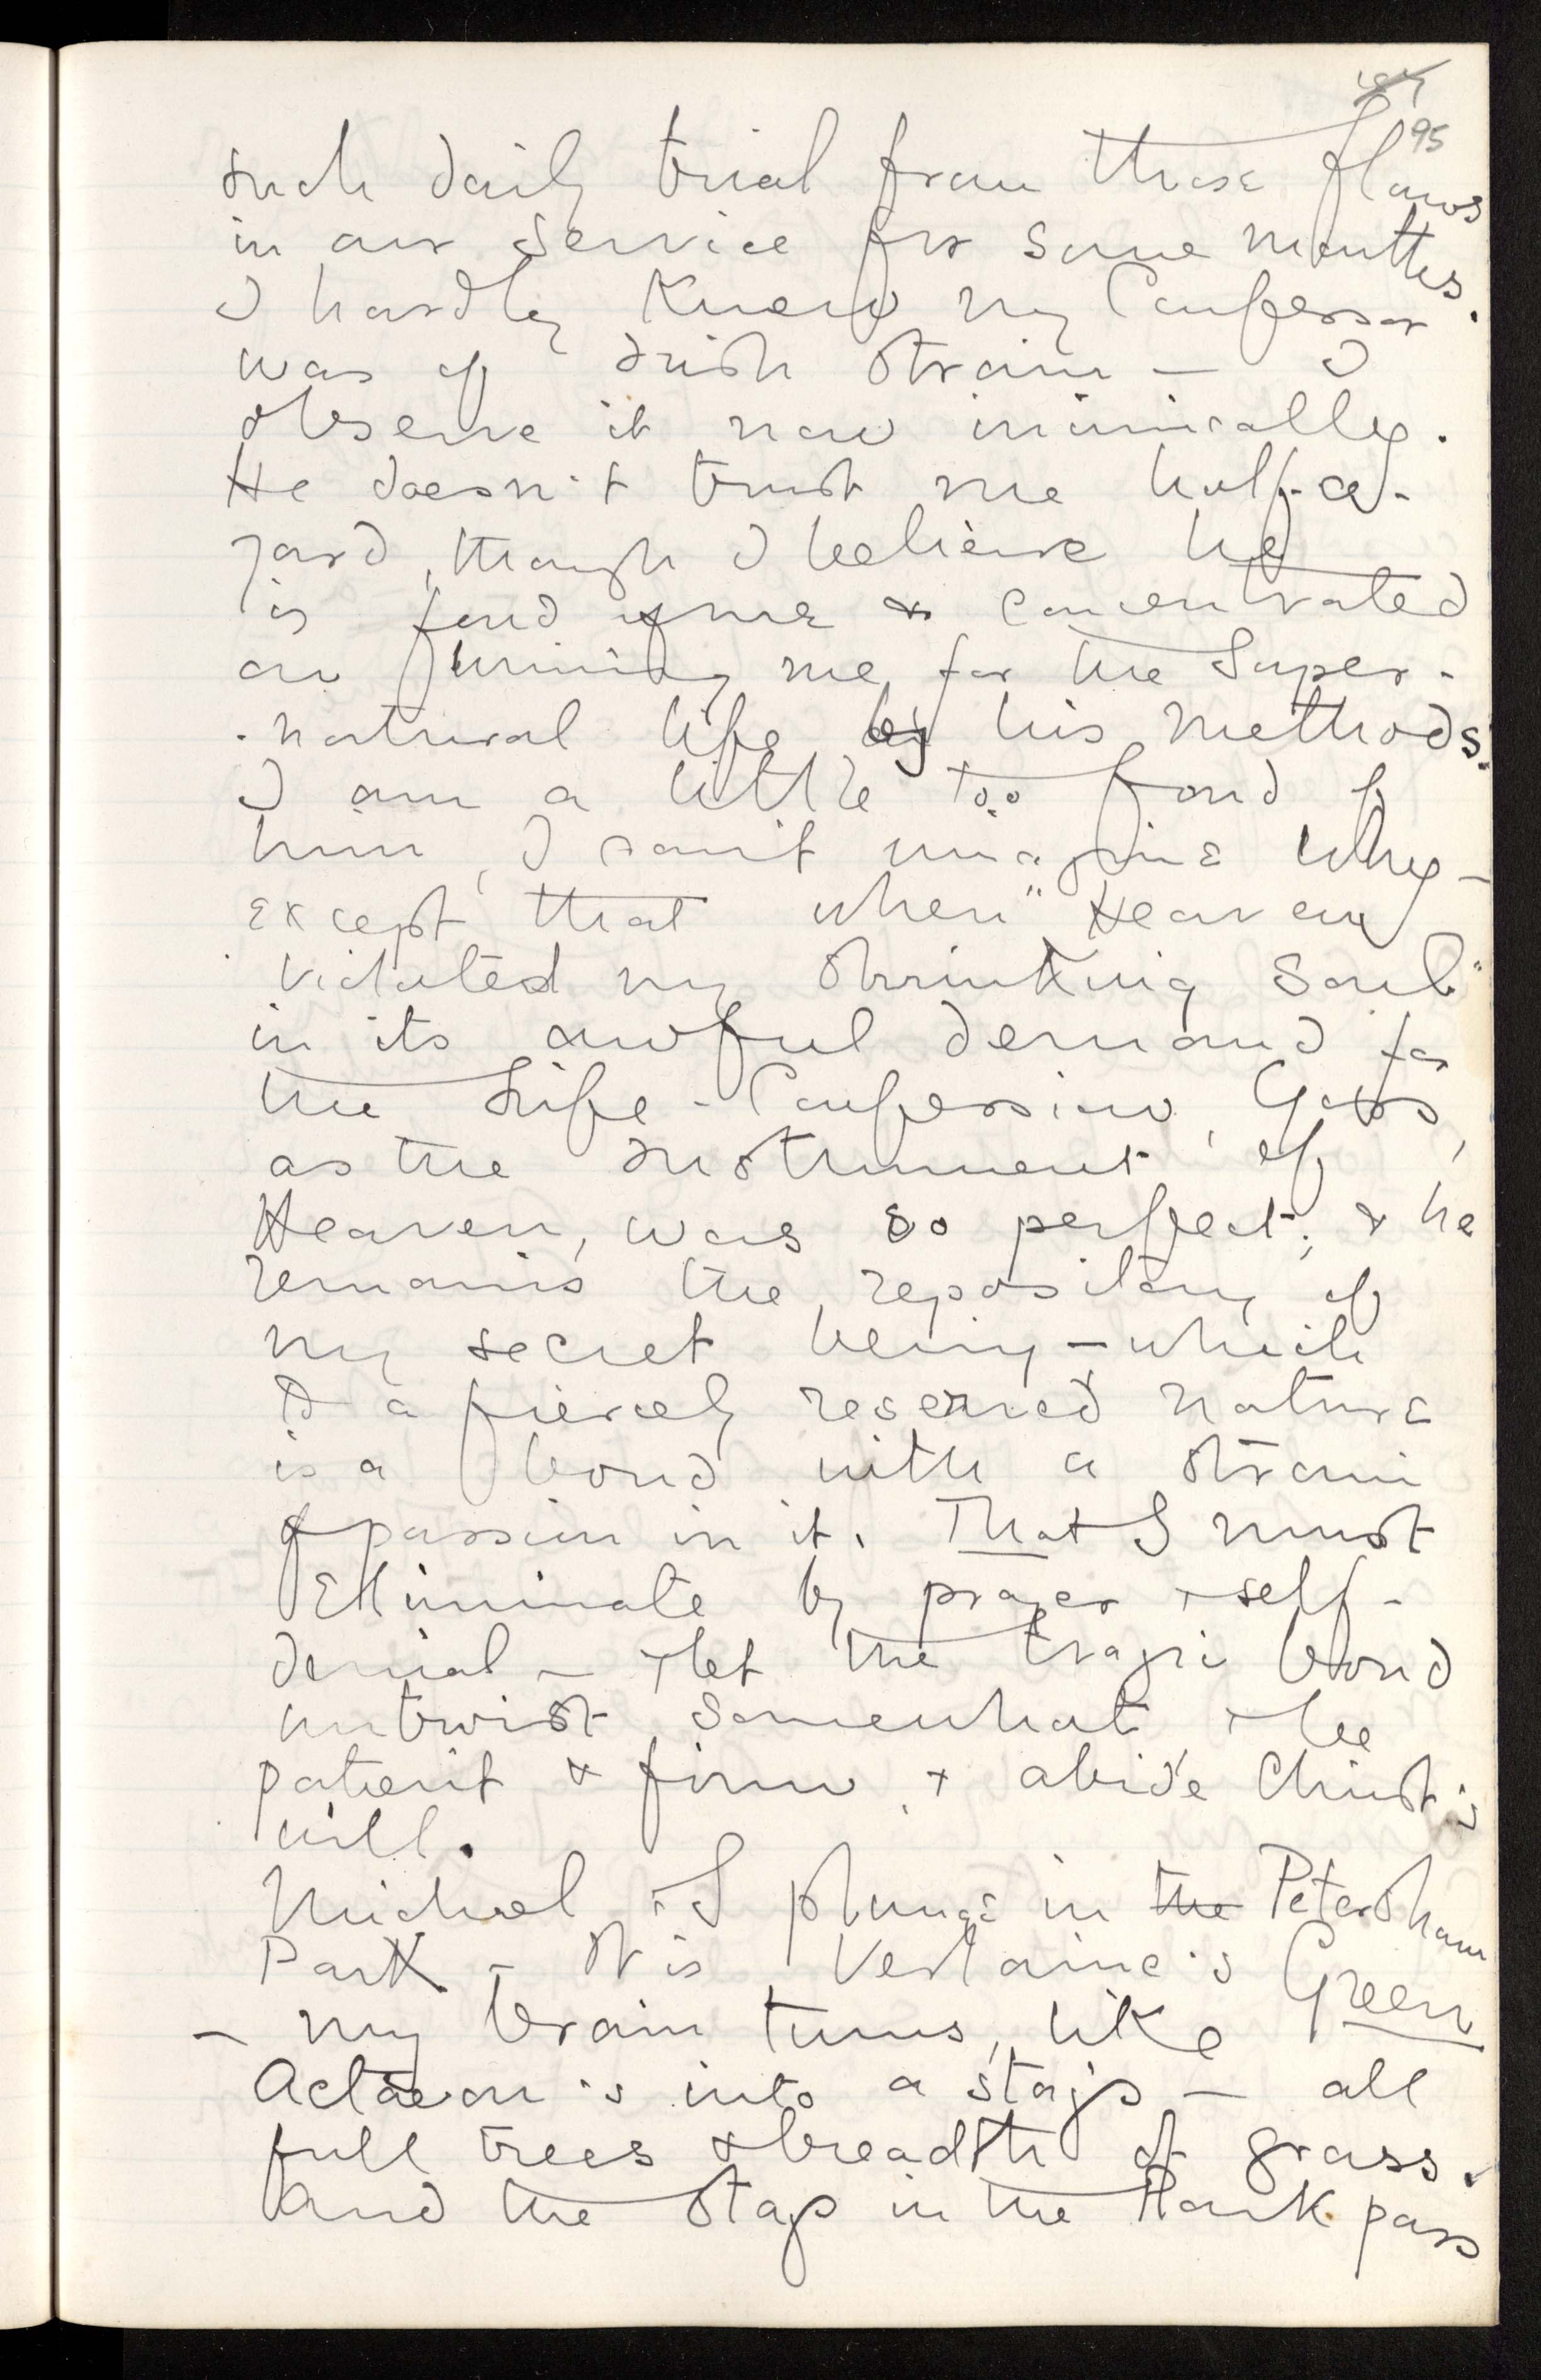 95
such daily trial from these flaws
in our service for some months.
I hardly knew my Confessor
was of Irish strain — I
observe it now inimically.
He doesn't trust me half-a-
yard, though I believe he
is fond of me & concentrated
on me for the Super-
-natural life by his methods.
I am a little too fond of
him, I can't imagine why —
except that when "Heaven
violated my shrinking soul"
in its awful demand for
the Life-Confession,
as the Instrument of
Heaven, was so perfect; & he
remains the repository of
my secret being — which
to a fiercely reserved nature
is a bond with a strain
of passion in it. That I must
Eliminate by prayer & self-
denial — & let the tragic bond
untwist somewhat, & be
patient & firm, & abide Christ's
will.
Michael & I plunge in the Petersham
Park — It is Verlaine's Green
— my brain turns, like
Actaeon's into a stag's — all
full trees & breadth of grass.
And the stags in the Park pass